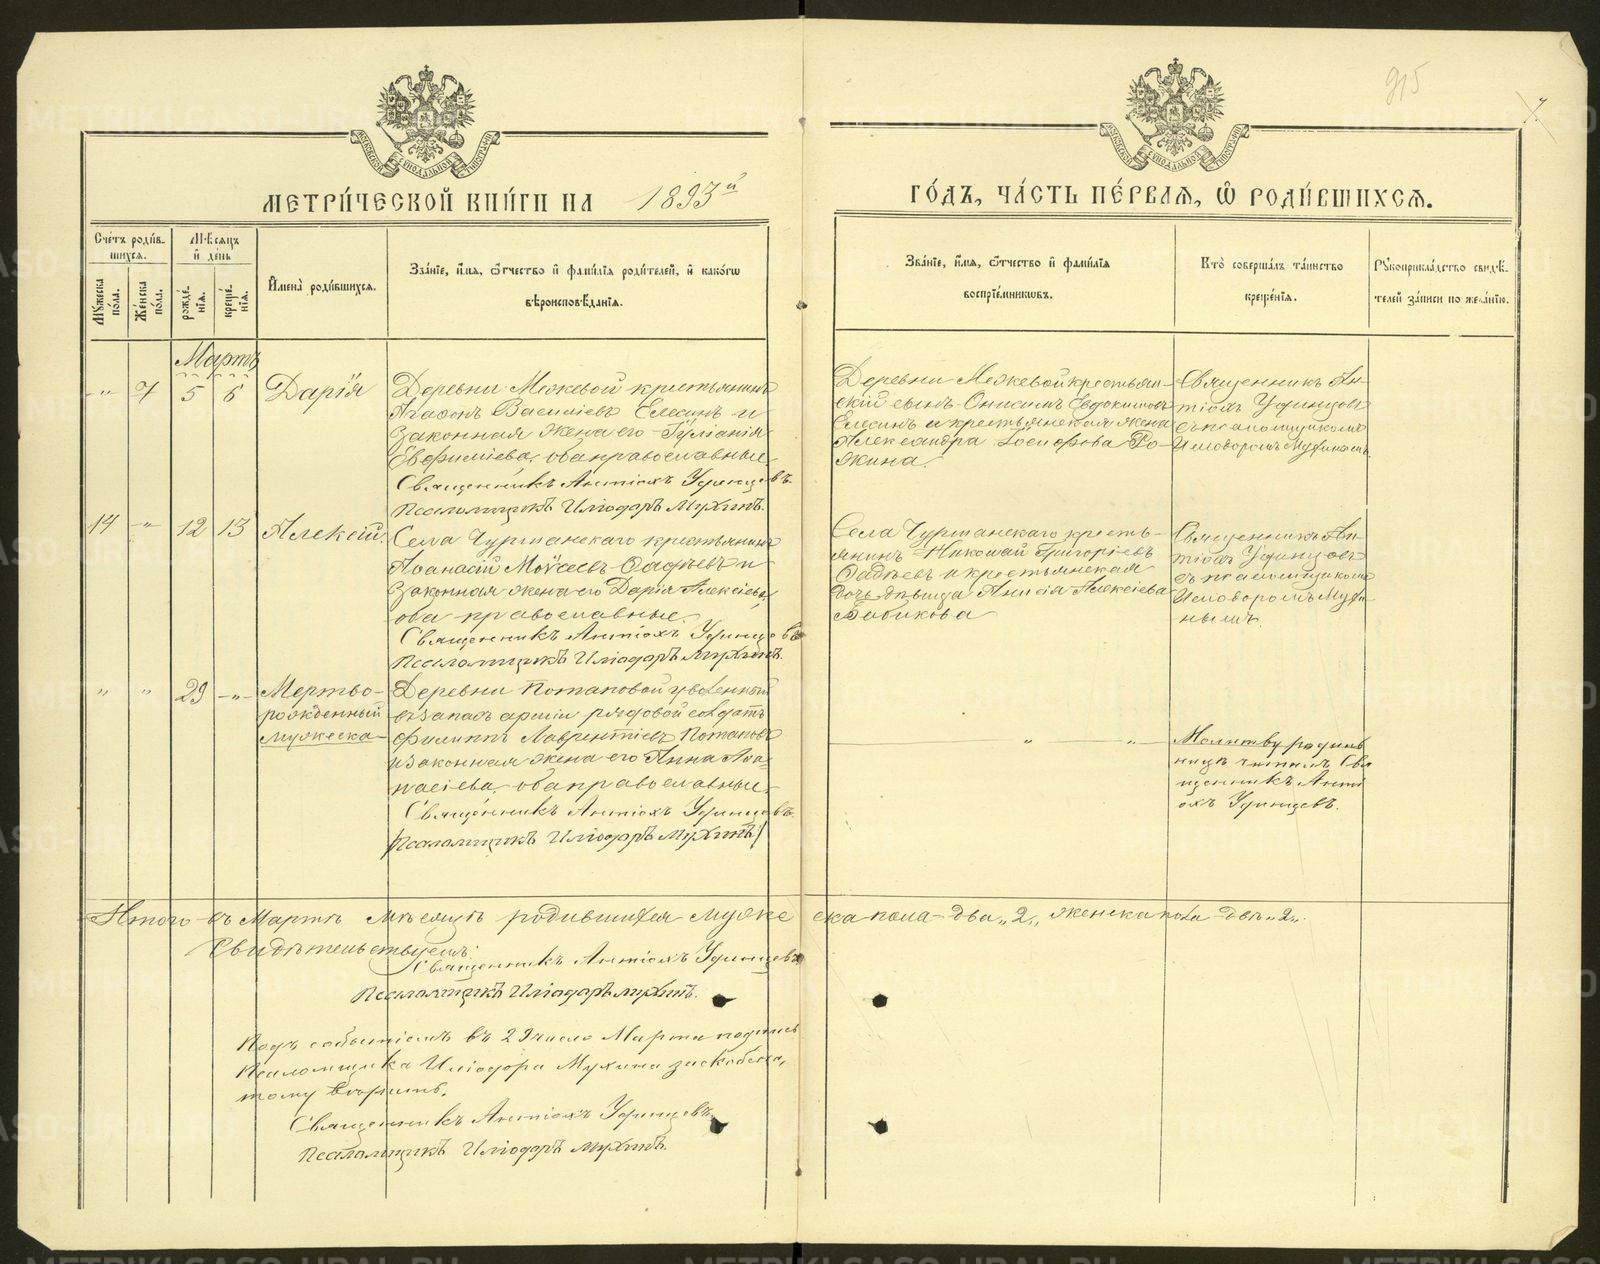 915
7.
МОСКОВСКОЙ СУНОДАЛЬНОЙ ТИПОГРАФІИ
МОСКОВСКОЙ СУНОДАЛЬНОЙ ТИПОГРАФІИ
МЕТРИ́ЧЕСКОЙ КНИ́ГИ НА 1893й
ГО́ДЪ, ЧА́СТЬ ПЕ́РВАѦ, Ѡ҆ РОДИ́ВШИХСѦ.
Сче́тъ роди́в-
шихсѧ.
Мꙋ́жеска по́ла.
Же́нска по́ла.
Мѣ́сѧцъ и҆ де́нь
рожде́нїѧ.
креще́нїѧ.
И҆мена̀ роди́вшихсѧ.
Зва́нїе, и҆́мѧ, ѻ҆́тчество и҆ фами́лїѧ роди́телей, и҆ како́гѡ
вѣроисповѣ́данїѧ.
Зва́нїе, и҆́мѧ, ѻ҆́тчество и҆ фами́лїѧ
воспрїе́мникѡвъ.
Кто̀ соверша́лъ та́инство
креще́нїѧ.
Рꙋкоприкла́дство свидѣ́-
телей за́писи по жела́нїю.
Мартъ
-"- 7 5 6 Дарія
Деревни Межевой крестьянинъ
Агафонъ Василіевъ Елесинъ и
законная жена его Іуліанія
Евфиміева, оба православные.
Священникъ Антіохъ Удинцевъ.
Псаломщикъ Иліодоръ Мухинъ.
Деревни Межевой крестьян-
скій сынъ Онисимъ Евдокимовъ
Елесинъ и крестьянская жена
Александра Іосифова Ро-
жина.
Священникъ Ан-
тіохъ Удинцовъ
съ псаломщикомъ
Илиодоромъ Мухинымъ.
14 -"- 12 13 Алексій.
Села Чурманскаго крестьянинъ
Аѳанасій Моѵсеевъ Фадѣевъ и
законная жена его Дарія Алексіева,
оба православные.
Священникъ Антіохъ Удинцевъ
Псаломщикъ Иліодоръ Мухинъ.
Села Чурманскаго кресть-
янинъ Николай Григоріевъ
Фадѣевъ и крестьянская
дочь дѣвица Анисія Алексіева
Бабикова
Священникъ Ан-
тіохъ Удинцовъ
съ псаломщикомъ
Илиодоромъ Мухи-
нымъ.
" " 29 -"-
Мертво-
рожденный
мужеска
Деревни Потаповой уволенный
въ запасъ арміи рядовой солдатъ
Филиппъ Лаврентіевъ Потаповъ
и законная жена его Анна Аѳа-
насіева, оба православные.
Священникъ Антіохъ Удинцевъ.
[Псаломщикъ Иліодоръ Мухинъ]
" "
Молитву родиль
ницѣ читалъ Свя
щенникъ Анти
охъ Удинцевъ.
Итого въ Мартѣ мѣсяцѣ родившихся мужеска пола - два „2„, женска пола - двѣ „2„.
Свидѣтельствуемъ:
Священникъ Антіохъ Удинцевъ
Псаломщикъ Иліодоръ Мухинъ.
Подъ событіемъ въ 29 число Марта подпись
Псаломщика Иліодора Мухина заскоблена,
тому вѣрить.
Священникъ Антіохъ Удинцевъ.
Псаломщикъ Иліодоръ Мухинъ.
METRIKI.GASO-URAL.RU